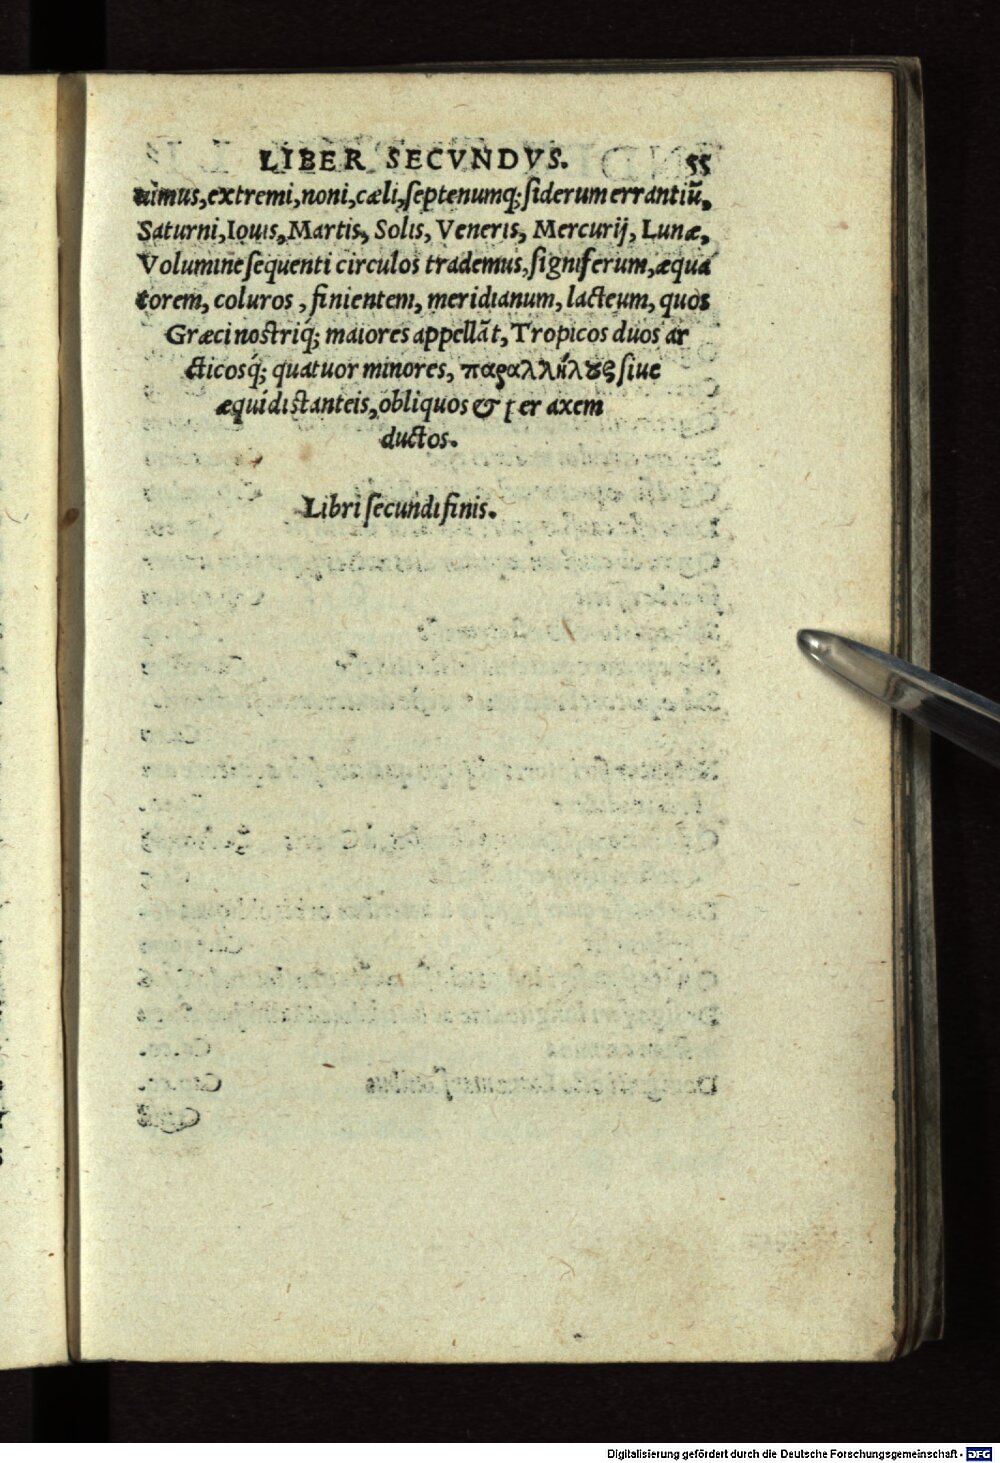 LIBER SECVNDVS. 55
uimus, extremi, noni, cæli, septenumq; siderum errantiũ,
Saturni, Iouis, Martis, Solis, Veneris, Mercurij, Lunæ,
Volumine sequenti circulos trademus, signiferum, æqua
torem, coluros, finientem, meridianum, lacteum, quos
Græci nostriq́; maiores appellãt, Tropicos duos ar
cticosq́; quatuor minores, παραλλήλους siue
æquidistanteis, obliquos & per axem
ductos.
Libri secundi finis.
Digitalisierung gefördert durch die Deutsche Forschungsgemeinschaft - DFG